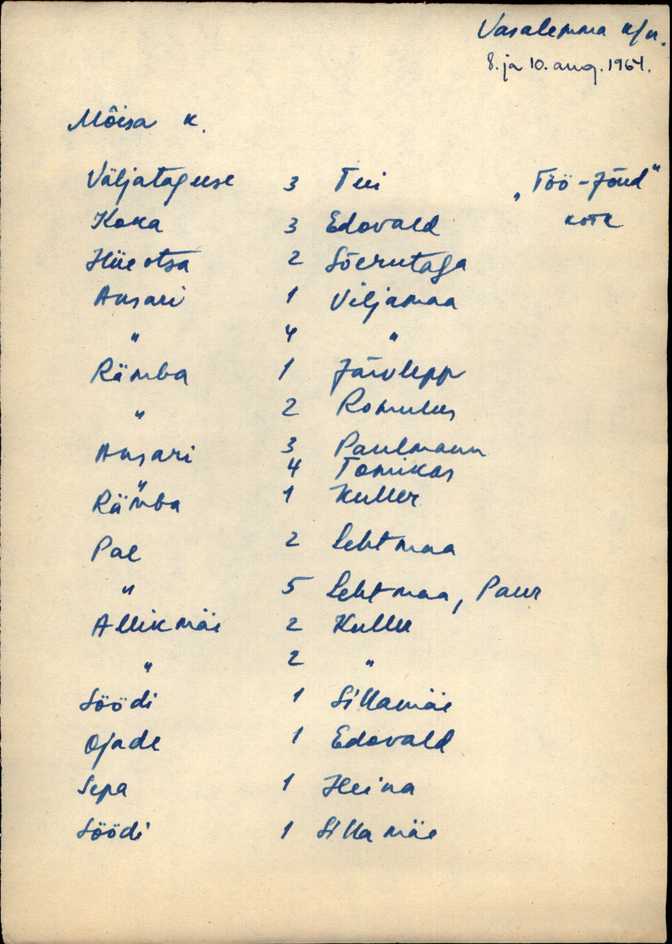 Vasalemma k/n.
8. ja 10. aug. 1964.
Mõisa k.
Väljataguse 3 Tui „Töö-Jõud"
Koka 3 Edovald kolh
Hiieotsa 2 Sõerutaga
Ansari 1 Viljamaa
" 4 "
Rämba 1 Järvlepp
" 2 Romulus
Ansari 3 Paulmann
" 4 Tomikas
Rämba 1 Kuller
Pae 2 Lehtmaa
" 5 Lehtmaa, Paur
Allikmäe 2 Kuller
" 2 "
Söödi 1 Sillamäe
Ojade 1 Edovald
Sepa 1 Heina
Söödi 1 Sillamäe